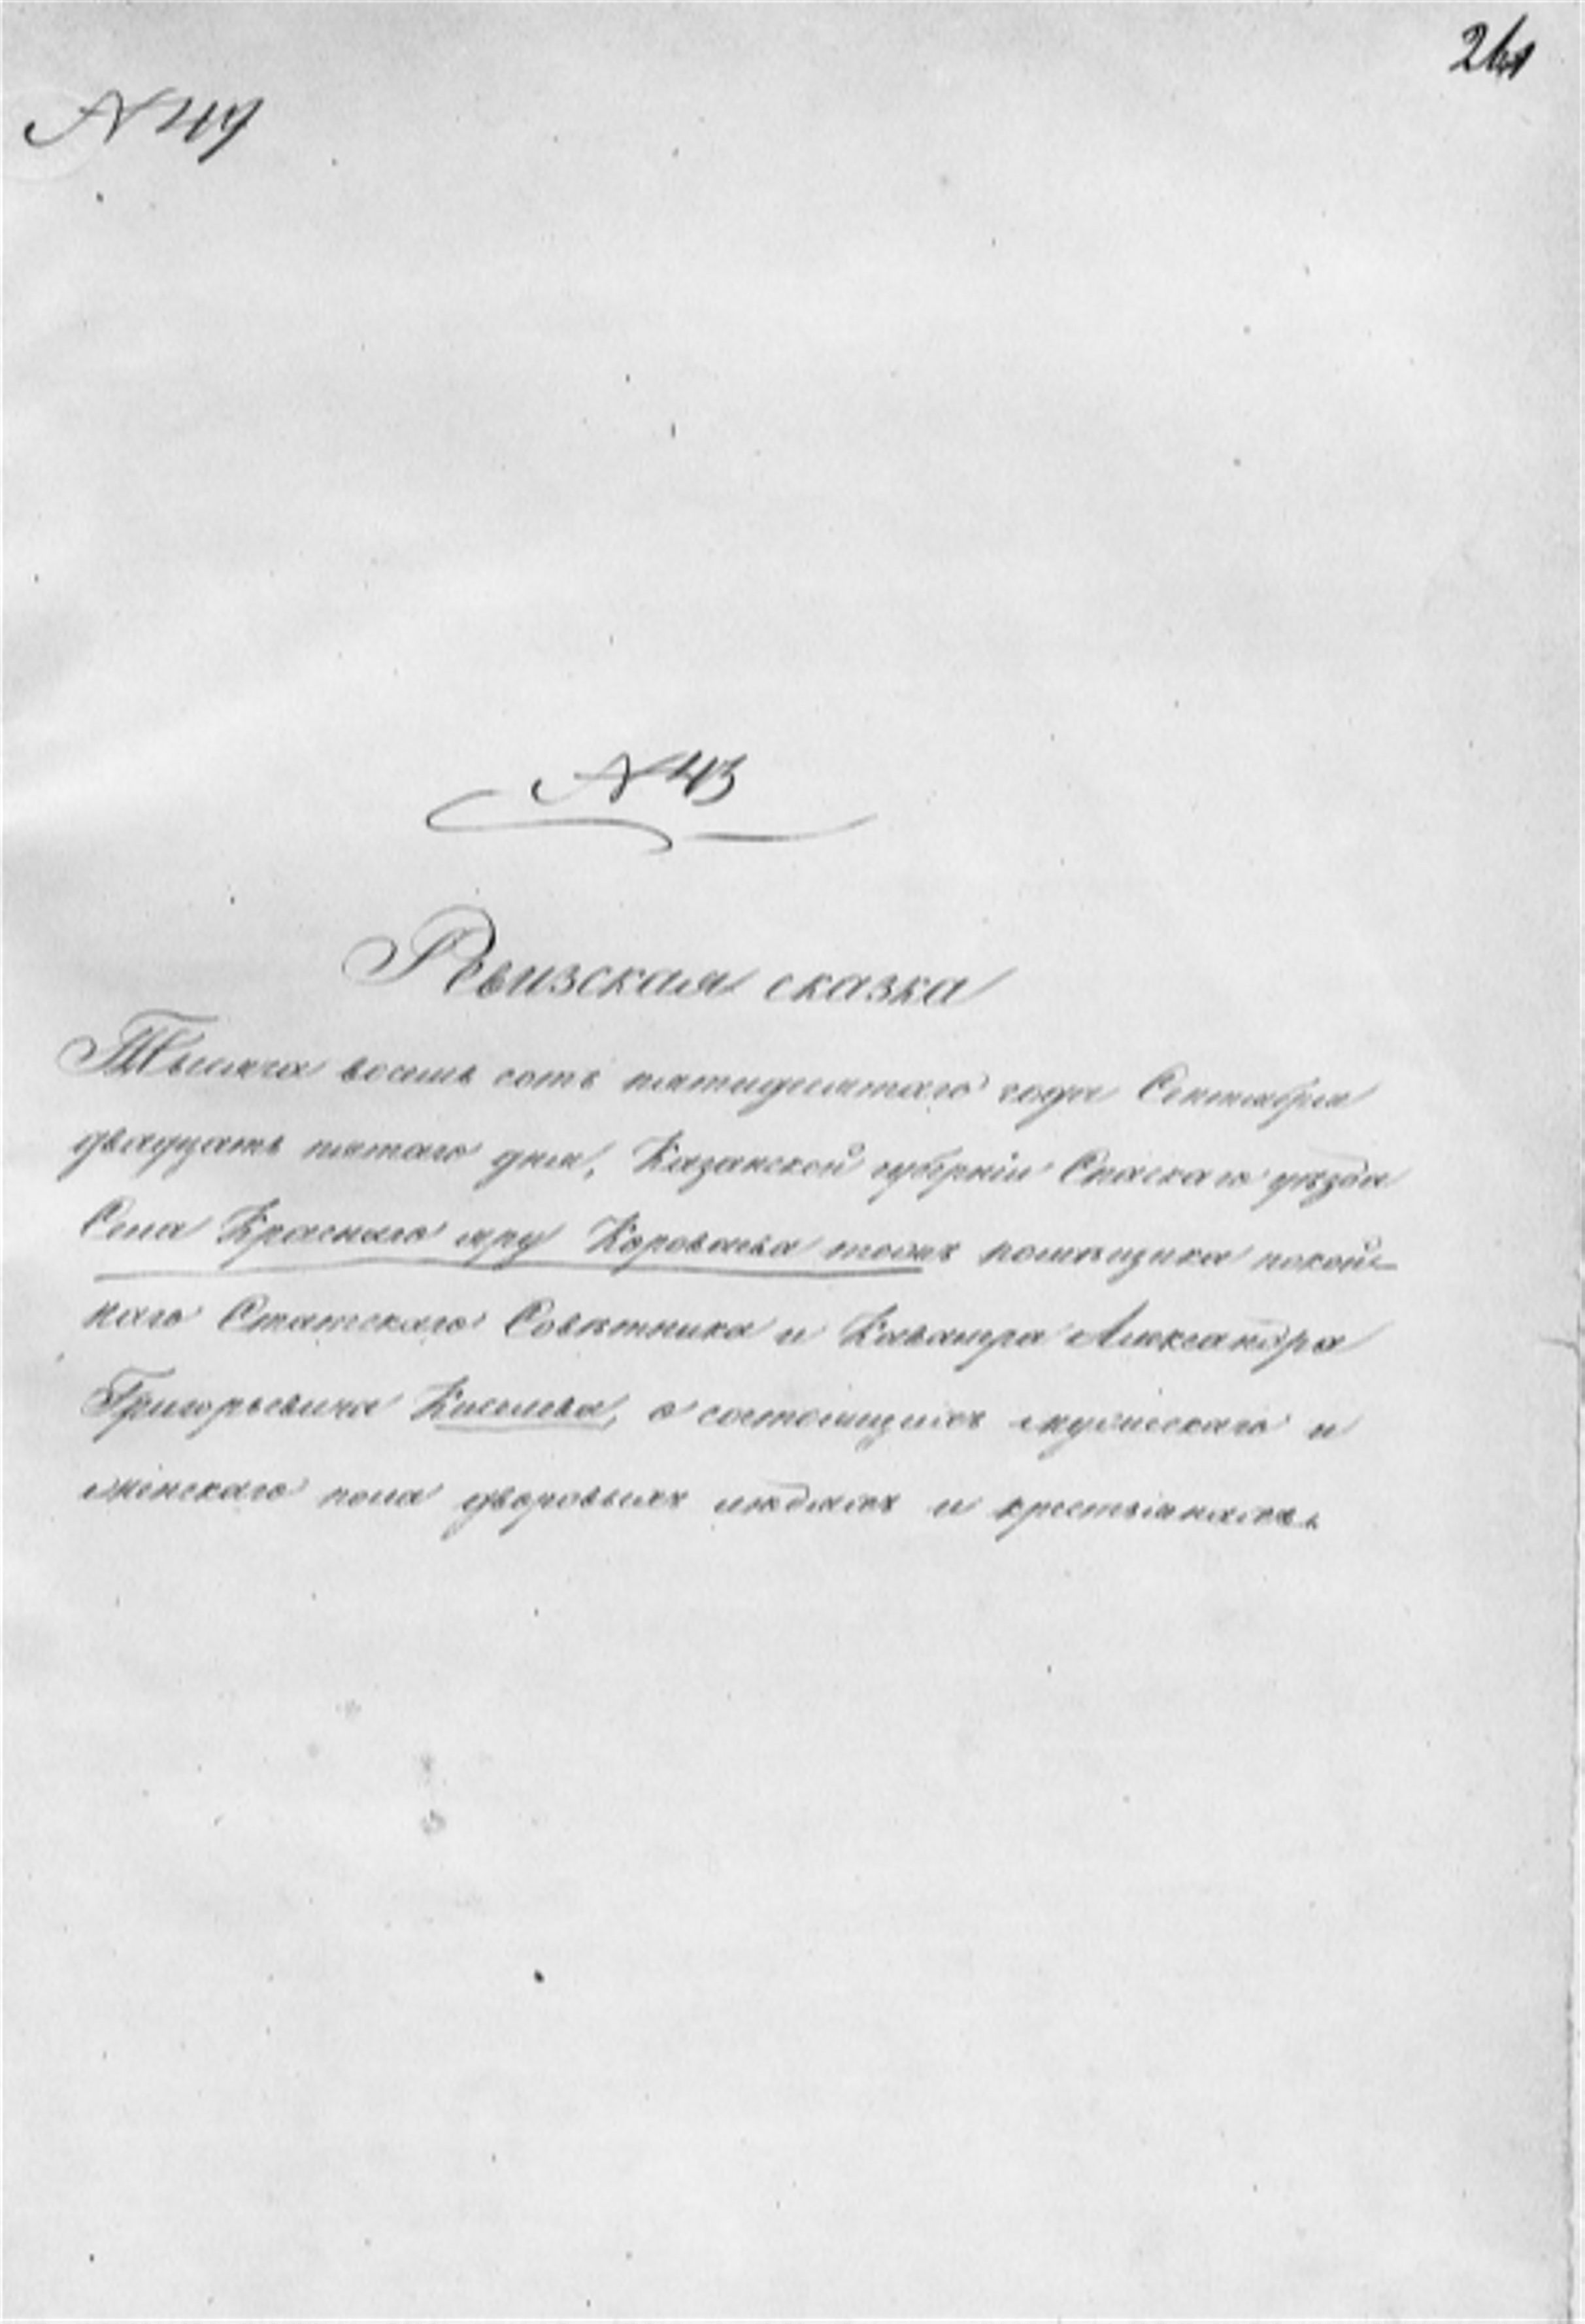 261
№ 47
№ 43
Ревизская сказка
Тысяча восемь сотъ пятидесятаго года Сентября
двадцать пятаго дня, Казанской губерніи Спаскаго уѣзда
Села Краснаго яру Короваева тожъ помѣщика покой-
наго Статскаго Совѣтника и Кавалера Александра
Григорьевича Киселева, о состоящихъ мужескаго и
женскаго пола дворовыхъ людяхъ и крестьянахъ.